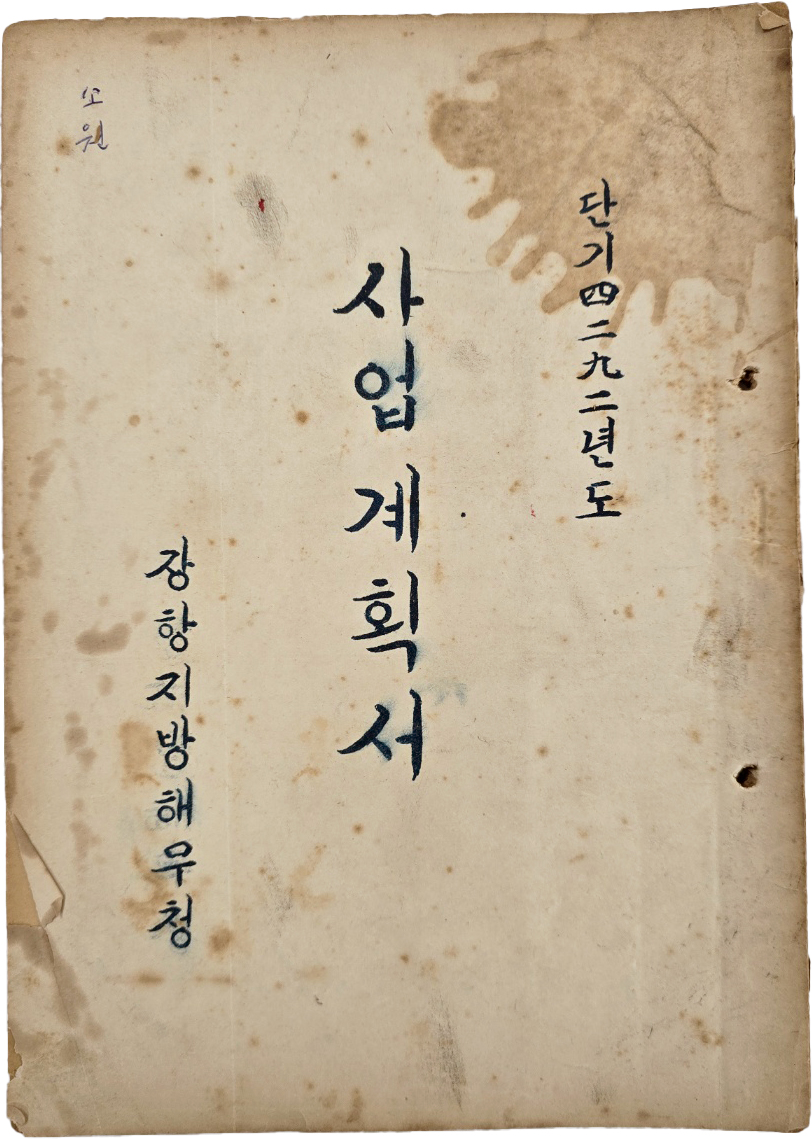 단기四二九二년도
사업계획서
장항지방해무청
소원